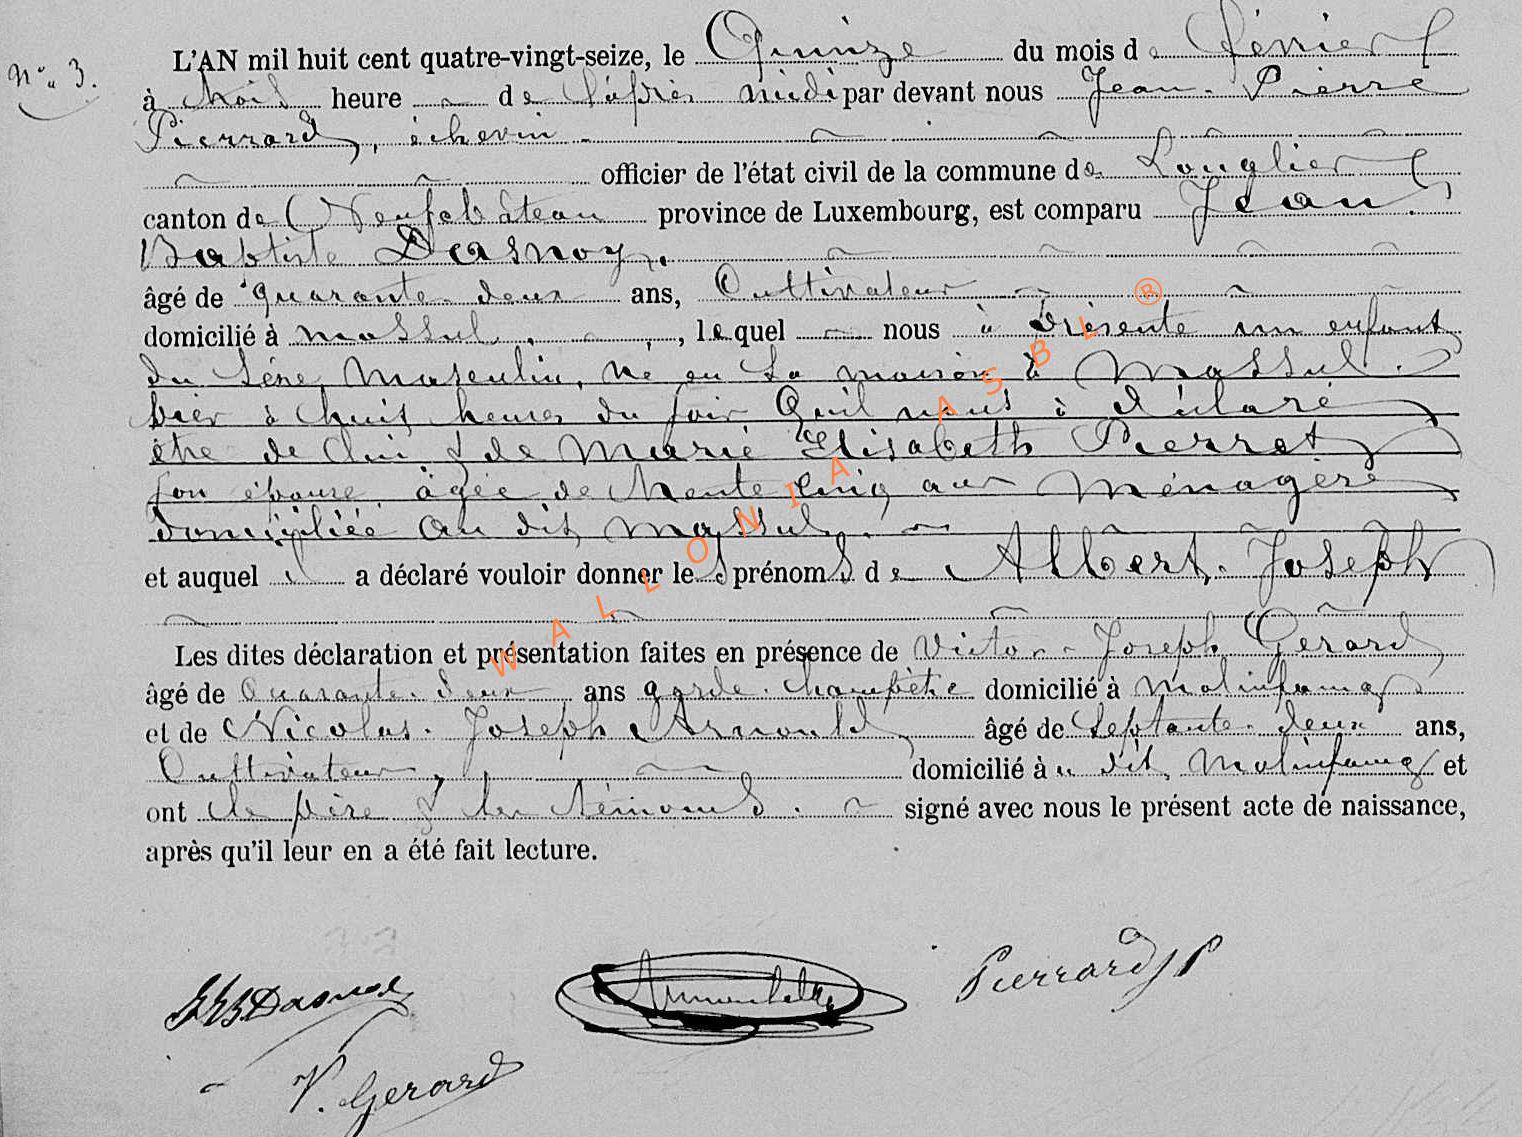 N° 3.
L'AN mil huit cent quatre-vingt-seize, le Quinze du mois de Février
à trois heure de l'après midi par devant nous Jean-Pierre
Pierrard, échevin
officier de l'état civil de la commune de Longlier
canton de Neufchâteau province de Luxembourg, est comparu Jean
Baptiste Dasnoy,
âgé de quarante-deux ans, Cultivateur
domicilié à Massul, lequel nous à présenté un enfant
du sexe masculin, né en sa maison à Massul
hier à huit heures du soir Qu'il nous à déclaré
être de lui & de Marie Elisabeth Pierret
son épouse, âgée de trente cinq ans Ménagère
domiciliée au dit Massul.
et auquel il a déclaré vouloir donner les prénoms de Albert-Joseph
Les dites déclaration et présentation faites en présence de Victor-Joseph Gérard
âgé de Quarante-deux ans garde-champêtre domicilié à Molinfaing
et de Nicolas-Joseph Arnould, âgé de Septante-deux ans,
Cultivateur, domicilié à dit Molinfaing et
ont le père & les témoins signé avec nous le présent acte de naissance,
après qu'il leur en a été fait lecture.
WALLONIA ASBL ®
JB Dasnoy
Pierrard JP
V. Gerard